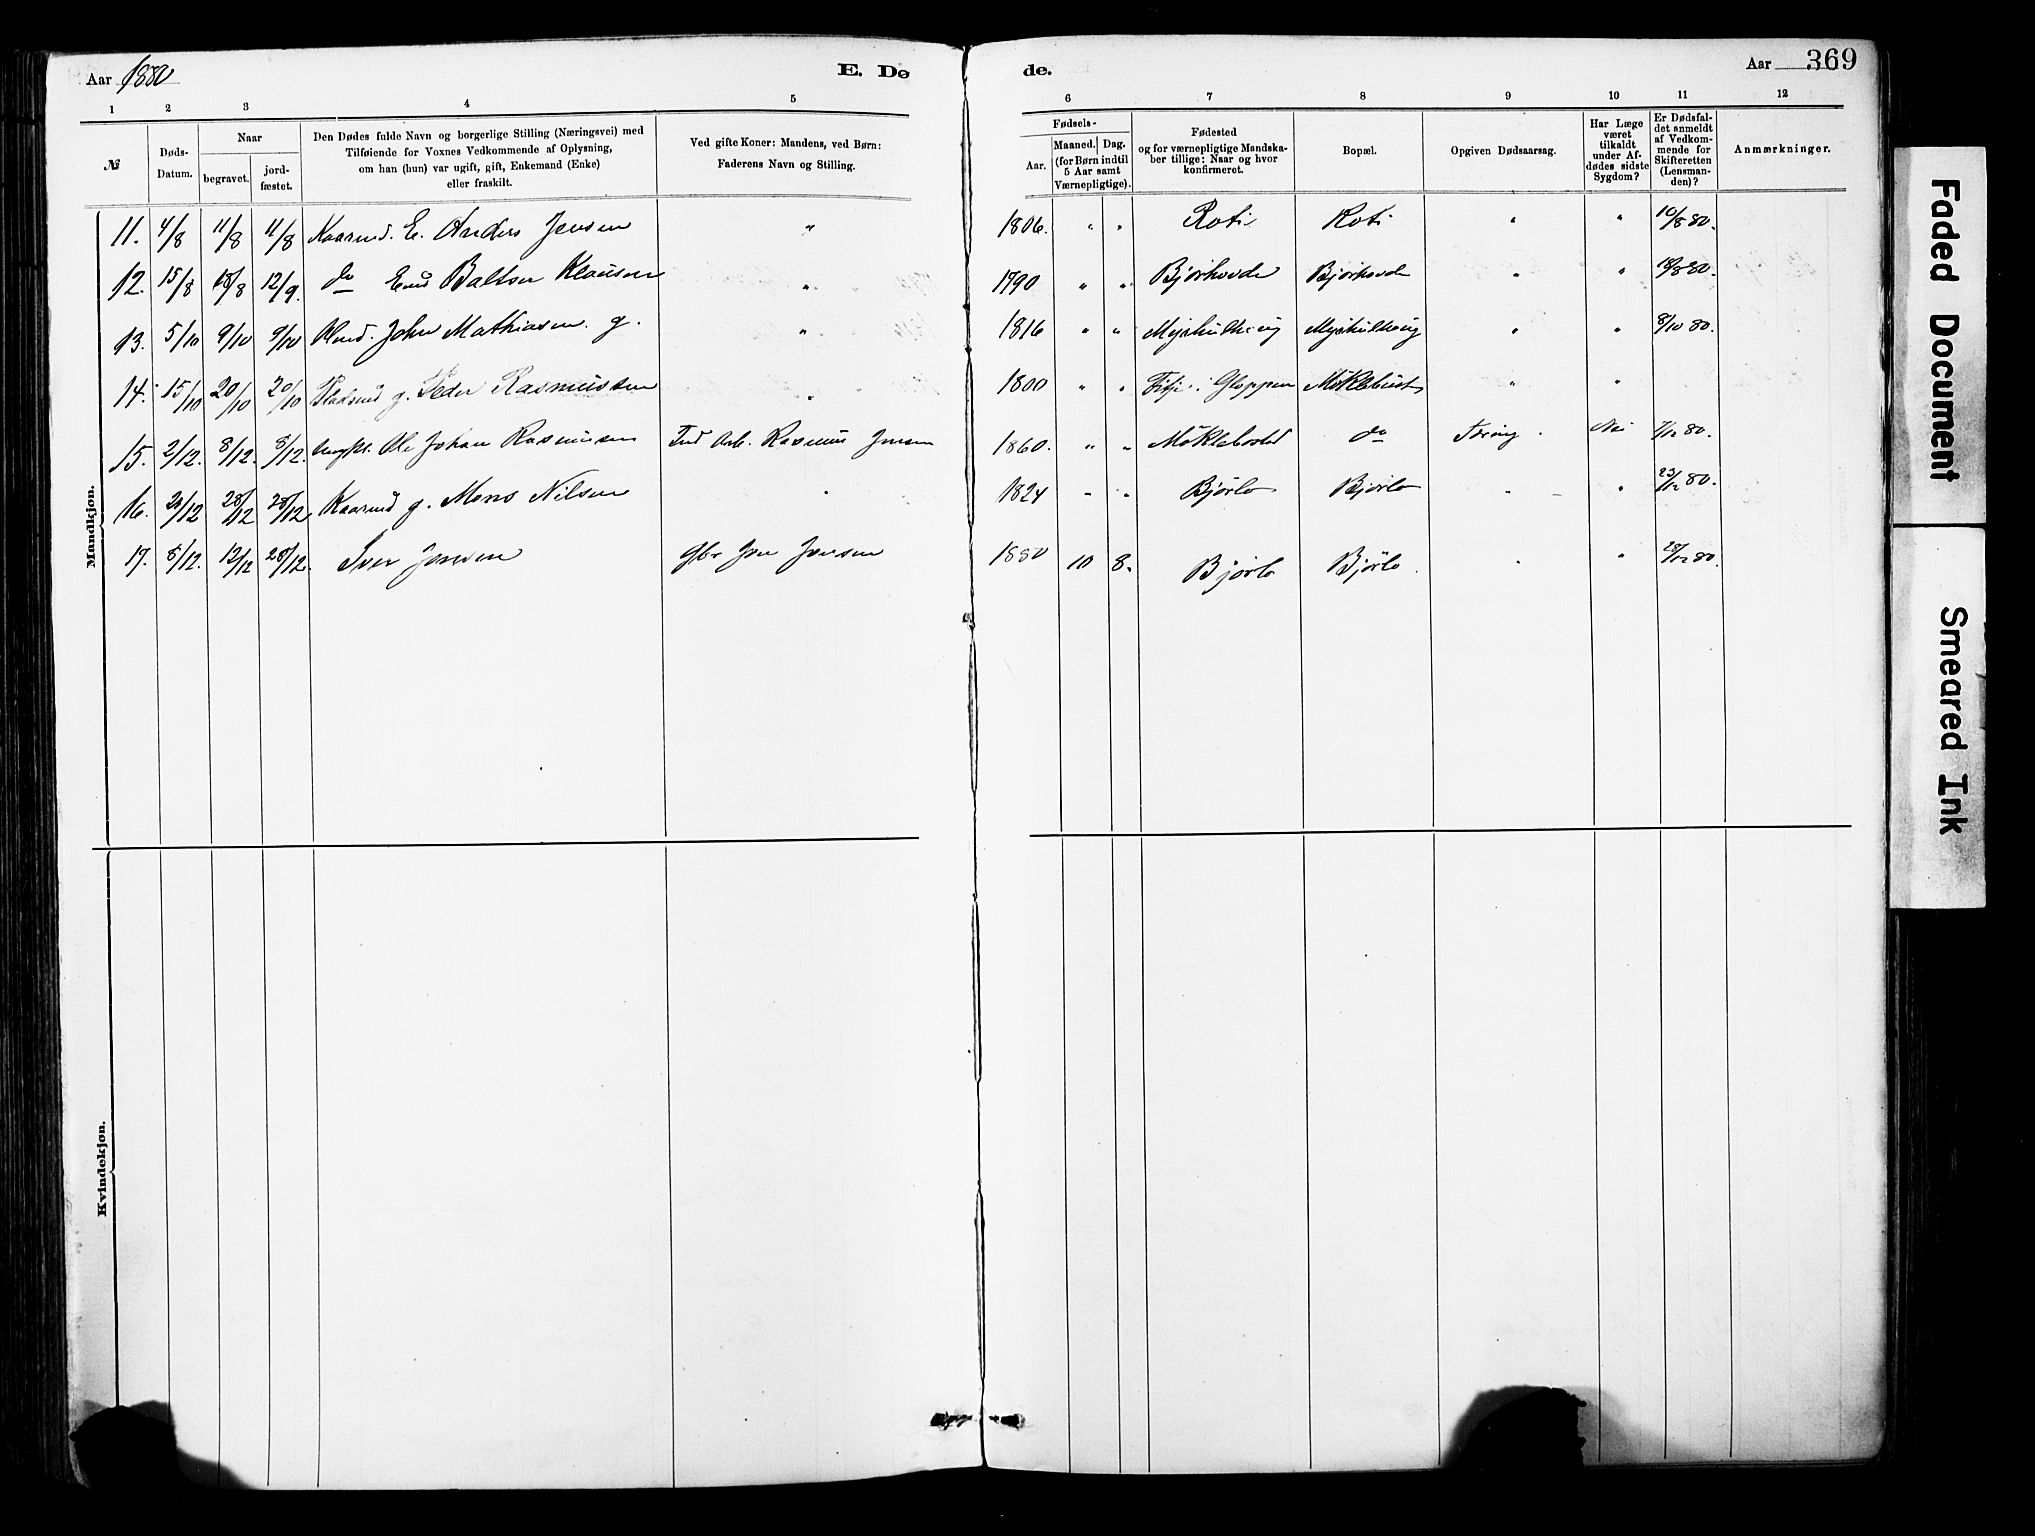 Aar 1880
E. Dø
de.
Aar
369
1 2 3 4 5 6 7 8 9 10 11 12
№
Døds-
Datum.
Naar
begravet.
jord-
fæstet.
Den Dødes fulde Navn og borgerlige Stilling (Næringsvei) med
Tilføiende for Voxnes Vedkommende af Oplysning,
om han (hun) var ugift, gift, Enkemand (Enke)
eller fraskilt.
Ved gifte Koner: Mandens, ved Børn:
Faderens Navn og Stilling.
Fødsels-
Aar.
Maaned. Dag.
(for Børn indtil
5 Aar samt
Værnepligtige).
Fødested
og for værnepligtige Mandska-
ber tillige: Naar og hvor
konfirmeret.
Bopæl.
Opgiven Dødsaarsag.
Har Læge
været
tilkaldt
under Af-
dødes sidste
Sygdom?
Er Dødsfal-
det anmeldt
af Vedkom-
mende for
Skifteretten
(Lensman-
den)?
Anmærkninger.
Mandkjøn.
11. 4/8 11/8 11/8 Kaarmd. E. Anders Jensen " 1806. " " Roti Roti " " 10/8 80.
12. 15/8 18/8 12/9. do Baltser Klausen " 1790 " " Bjørhovde Bjørhovde " " 18/8 80.
13. 5/10 9/10 9/10 John Mathiasen g. " 1816 " " Myrhulhaug Myrhulhaug " " 8/10 80.
14. 15/10 20/10 20/10 Pladsmd g. Peder Rasmussen " 1800 " " Gloppen Møklebust " "
15. 2/12. 8/12. 8/12. Ungkl. Ole Johan Rasmussen Ind. Arb. Rasmus Jensen 1860. " " Møklebosted do Tæring. Nei 7/12 80.
16. 21/12 28/12 28/12 Kaarmd g. Mons Nilsen " 1824 " " Bjørlo Bjørlo " " 23/12 80.
17. 8/12. 12/12 28/12. Iver Jensen Gbr Jensen 1880 10 8. Bjørlo Bjørlo. " " 28/12 80.
Kvindekjøn.
Faded Document
Smeared Ink